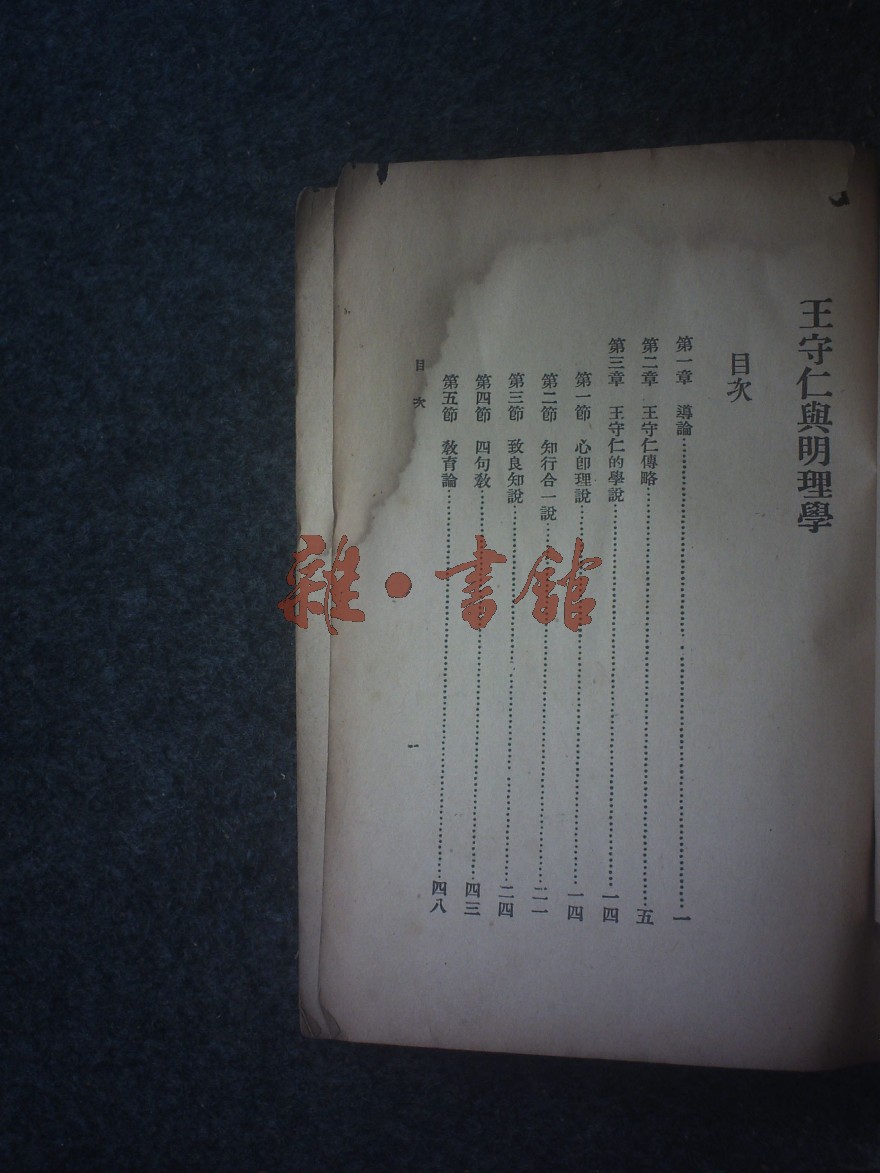 王守仁與明理學
目次
第一章 導論……一
第二章 王守仁傳略……五
第三章 王守仁的學說……一四
第一節 心卽理說……一四
第二節 知行合一說……二一
第三節 致良知說……二四
第四節 四句敎……四三
第五節 敎育論……四八
目次
一
雜·書館